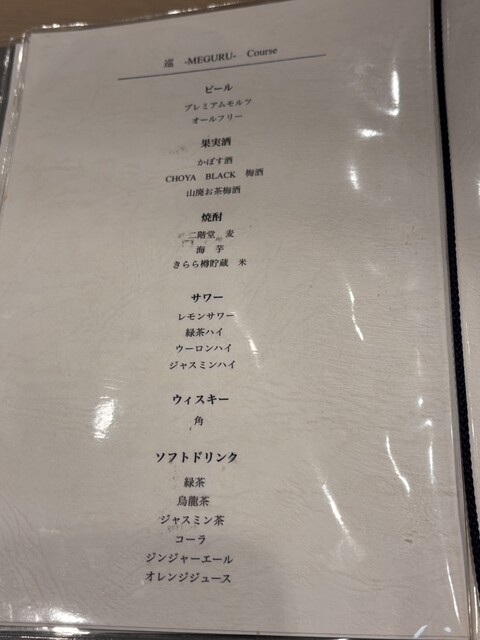 巡 -MEGURU- Course
ビール
プレミアムモルツ
オールフリー
果実酒
かぼす酒
CHOYA BLACK 梅酒
山廃お茶梅酒
焼酎
二階堂 麦
海 芋
きらら樽貯蔵 米
サワー
レモンサワー
緑茶ハイ
ウーロンハイ
ジャスミンハイ
ウィスキー
角
ソフトドリンク
緑茶
烏龍茶
ジャスミン茶
コーラ
ジンジャーエール
オレンジジュース